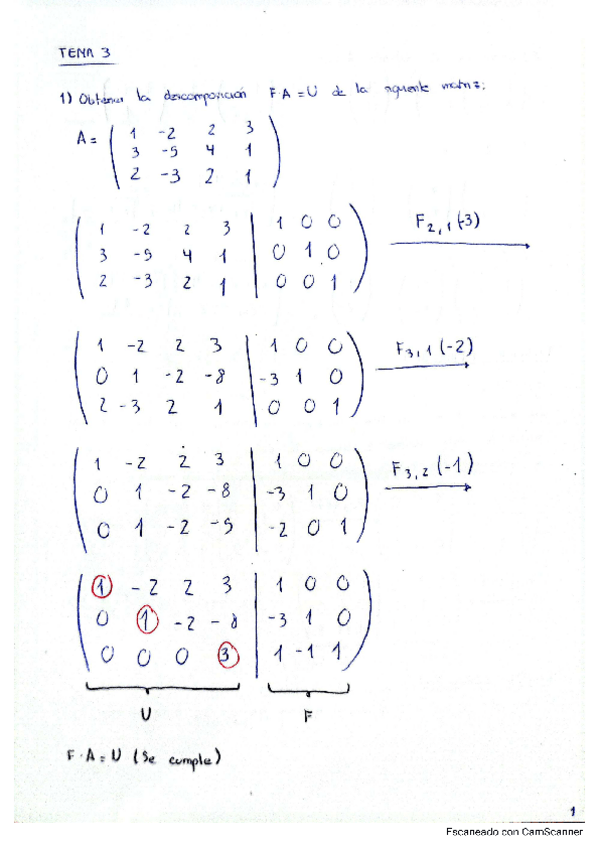 TEMA 3
1) Obtener la descomposición F A = U de la siguiente matriz:
A = ( 1 -2 2 3
3 -5 4 1
2 -3 2 1 )
( 1 -2 2 3 | 1 0 0 ) F2,1(-3)
3 -5 4 1 | 0 1 0
2 -3 2 1 | 0 0 1
( 1 -2 2 3 | 1 0 0 ) F3,1(-2)
0 1 -2 -8 | -3 1 0
2 -3 2 1 | 0 0 1
( 1 -2 2 3 | 1 0 0 ) F3,2(-1)
0 1 -2 -8 | -3 1 0
0 1 -2 -5 | -2 0 1
( 1 -2 2 3 | 1 0 0 )
0 1 -2 -8 | -3 1 0
0 0 0 3 | 1 -1 1
U F
F·A = U (Se cumple)
1
Escaneado con CamScanner